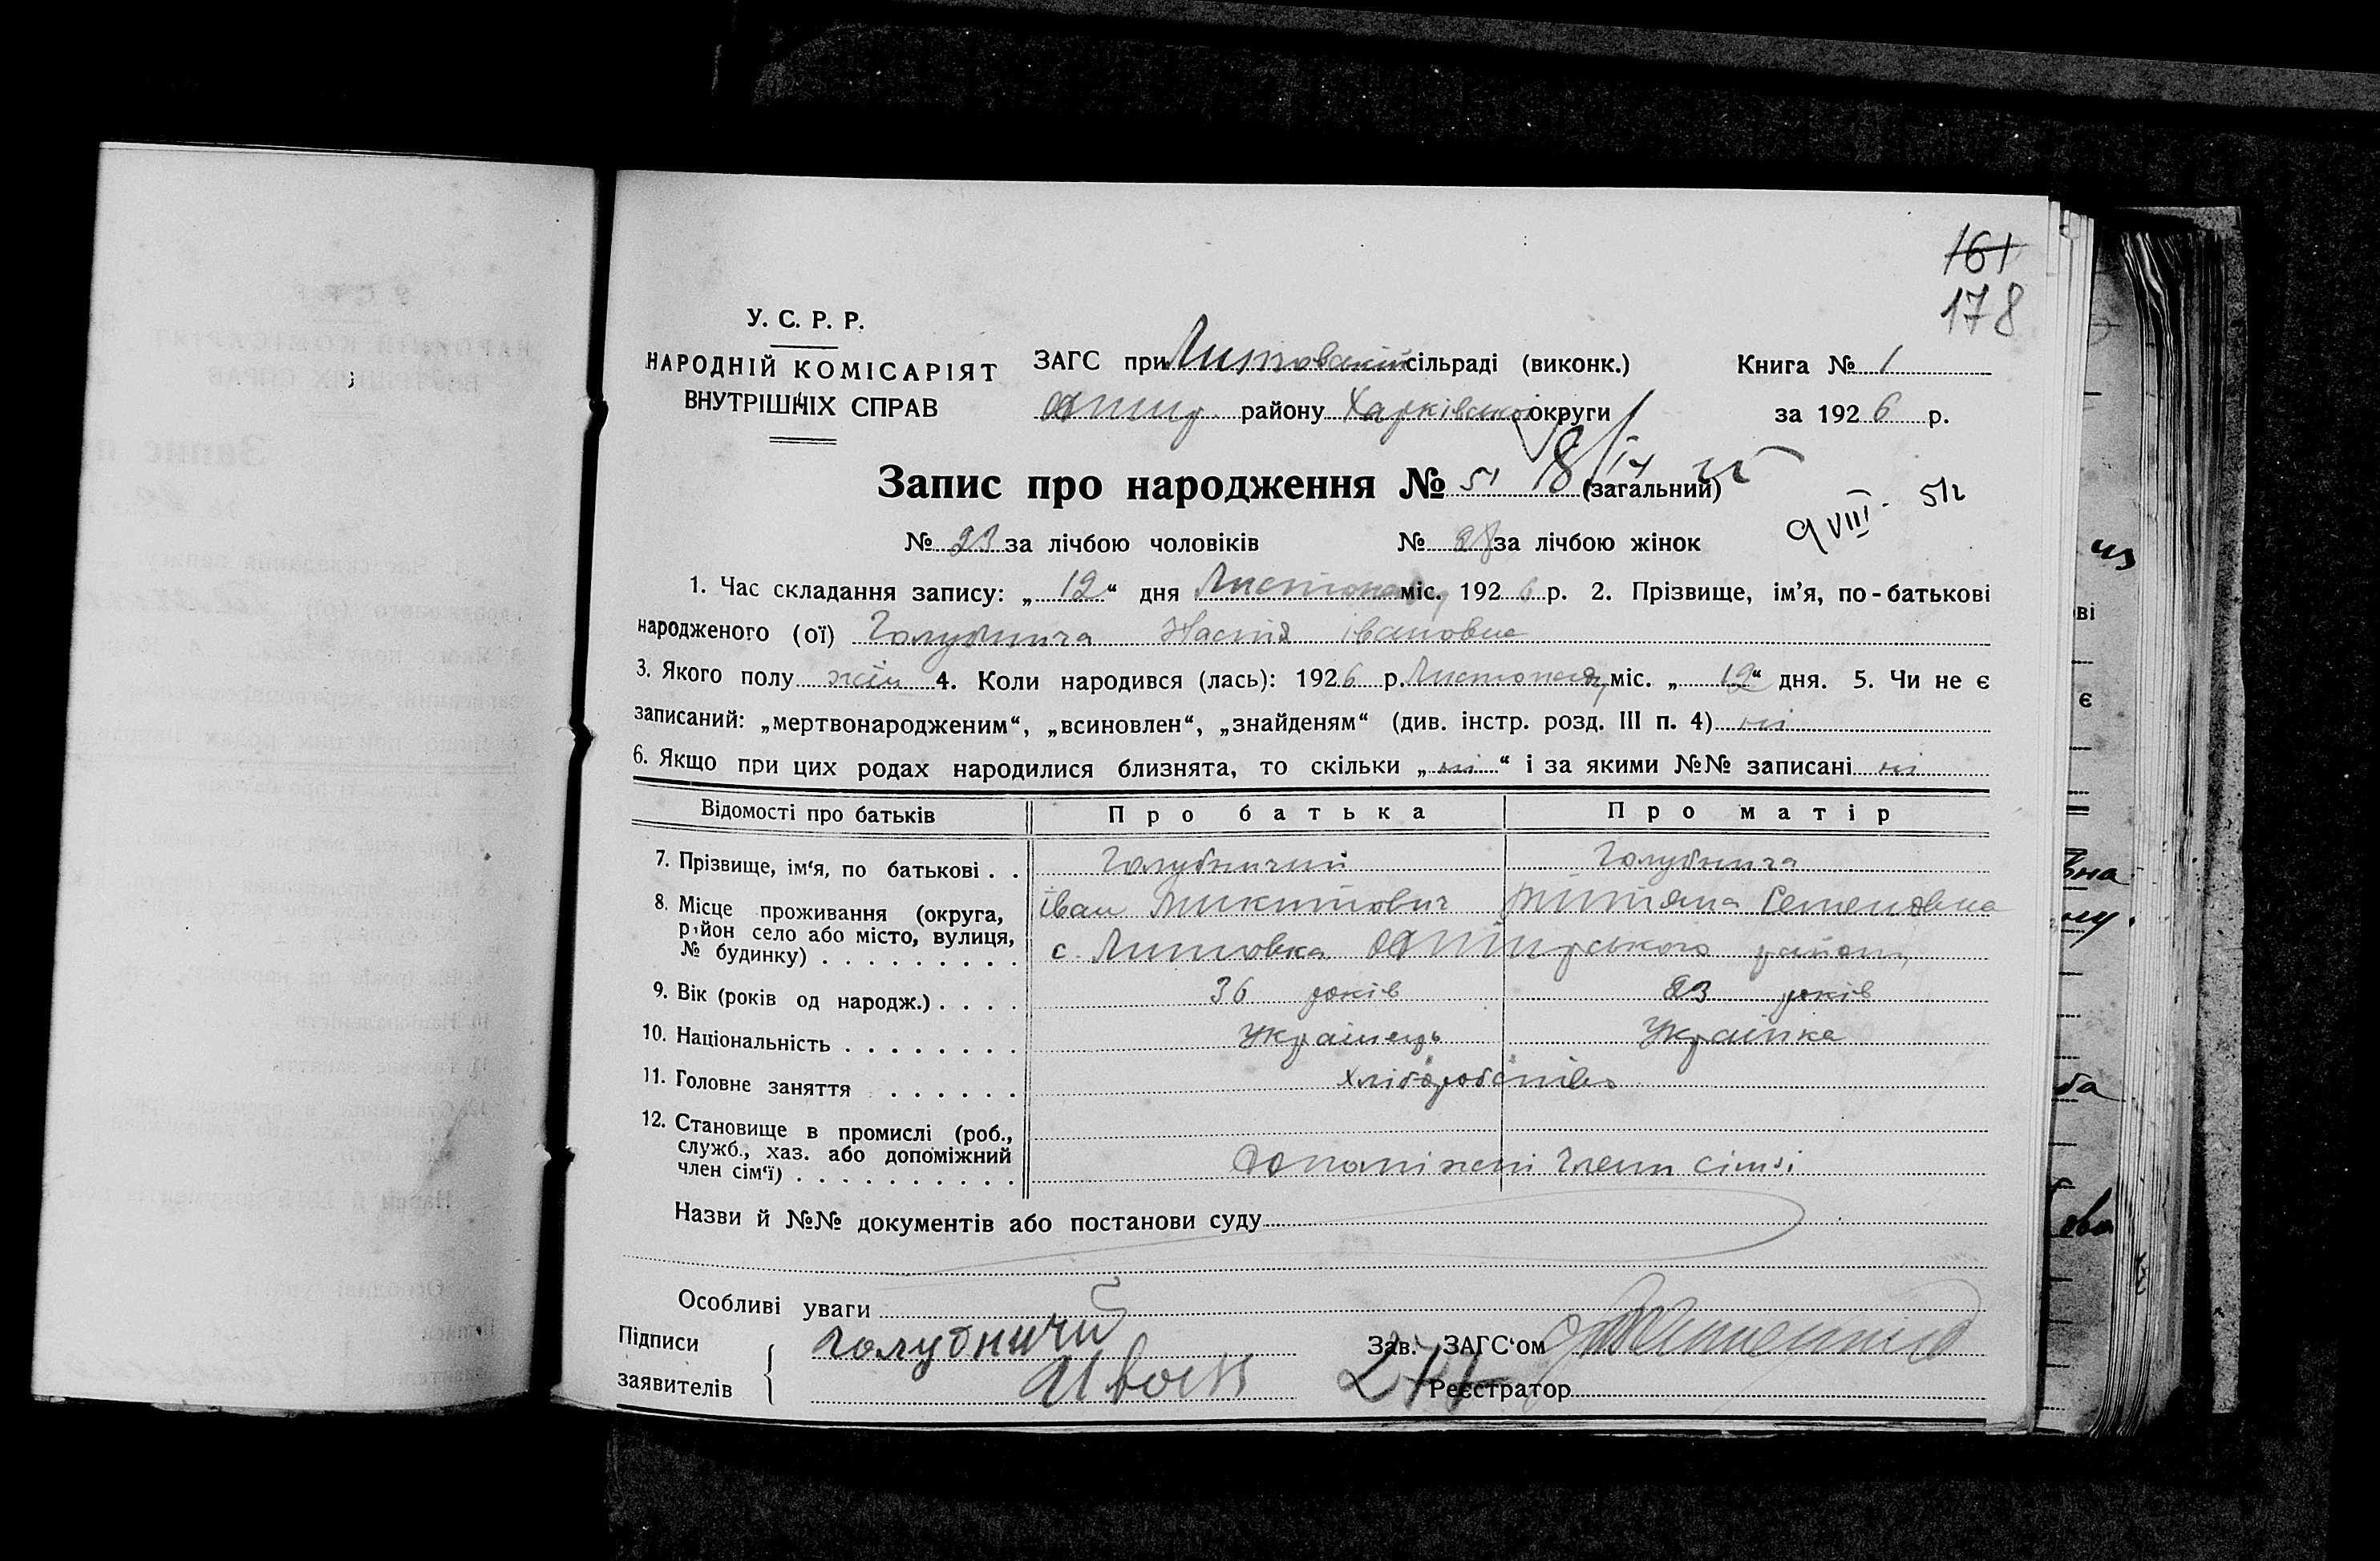 161
178
У. С. Р. Р.
НАРОДНІЙ КОМІСАРІЯТ
ВНУТРІШНІХ СПРАВ
ЗАГС при Литовській сільраді (виконк.)
Охтир. району Харківської округи
Книга № 1
за 1926 р.
Запис про народження № 51 (загальний)
18/IV
9 VIII - 51
№ 23 за лічбою чоловіків № 28 за лічбою жінок
1. Час складання запису: „12“ дня Листопаду міс. 1926 р. 2. Прізвище, ім’я, по-батькові
народженого (ої) Голубнича Настя івановна
3. Якого полу жін 4. Коли народився (лась): 1926 р. Листопаду міс. „12“ дня. 5. Чи не є
записаний: „мертвонародженим“, „всиновлен“, „знайденям“ (див. інстр. розд. III п. 4) ні
6. Якщо при цих родах народилися близнята, то скільки „ні“ і за якими №№ записані ні
Відомості про батьків Про батька Про матір
7. Прізвище, ім‘я, по батькові . . Голубничий Голубнича
іван Микитович Титяна Семеновна
8. Місце проживання (округа,
район село або місто, вулиця,
№ будинку) . . . . . . . . . с. Литовка Охтирського району
9. Вік (років од народж.) . . . . 36 років 23 років
10. Національність . . . . . . . . Українець Українка
11. Головне заняття . . . . . . Хліборобство
12. Становище в промислі (роб.,
служб., хаз. або допоміжний
член сім‘ї) . . . . . . . . . . Допоміжні члени сімї
Назви й №№ документів або постанови суду
Особливі уваги
Підписи
заявителів
Голубничий
Иван
Зав. ЗАГС‘ом
Реєстратор